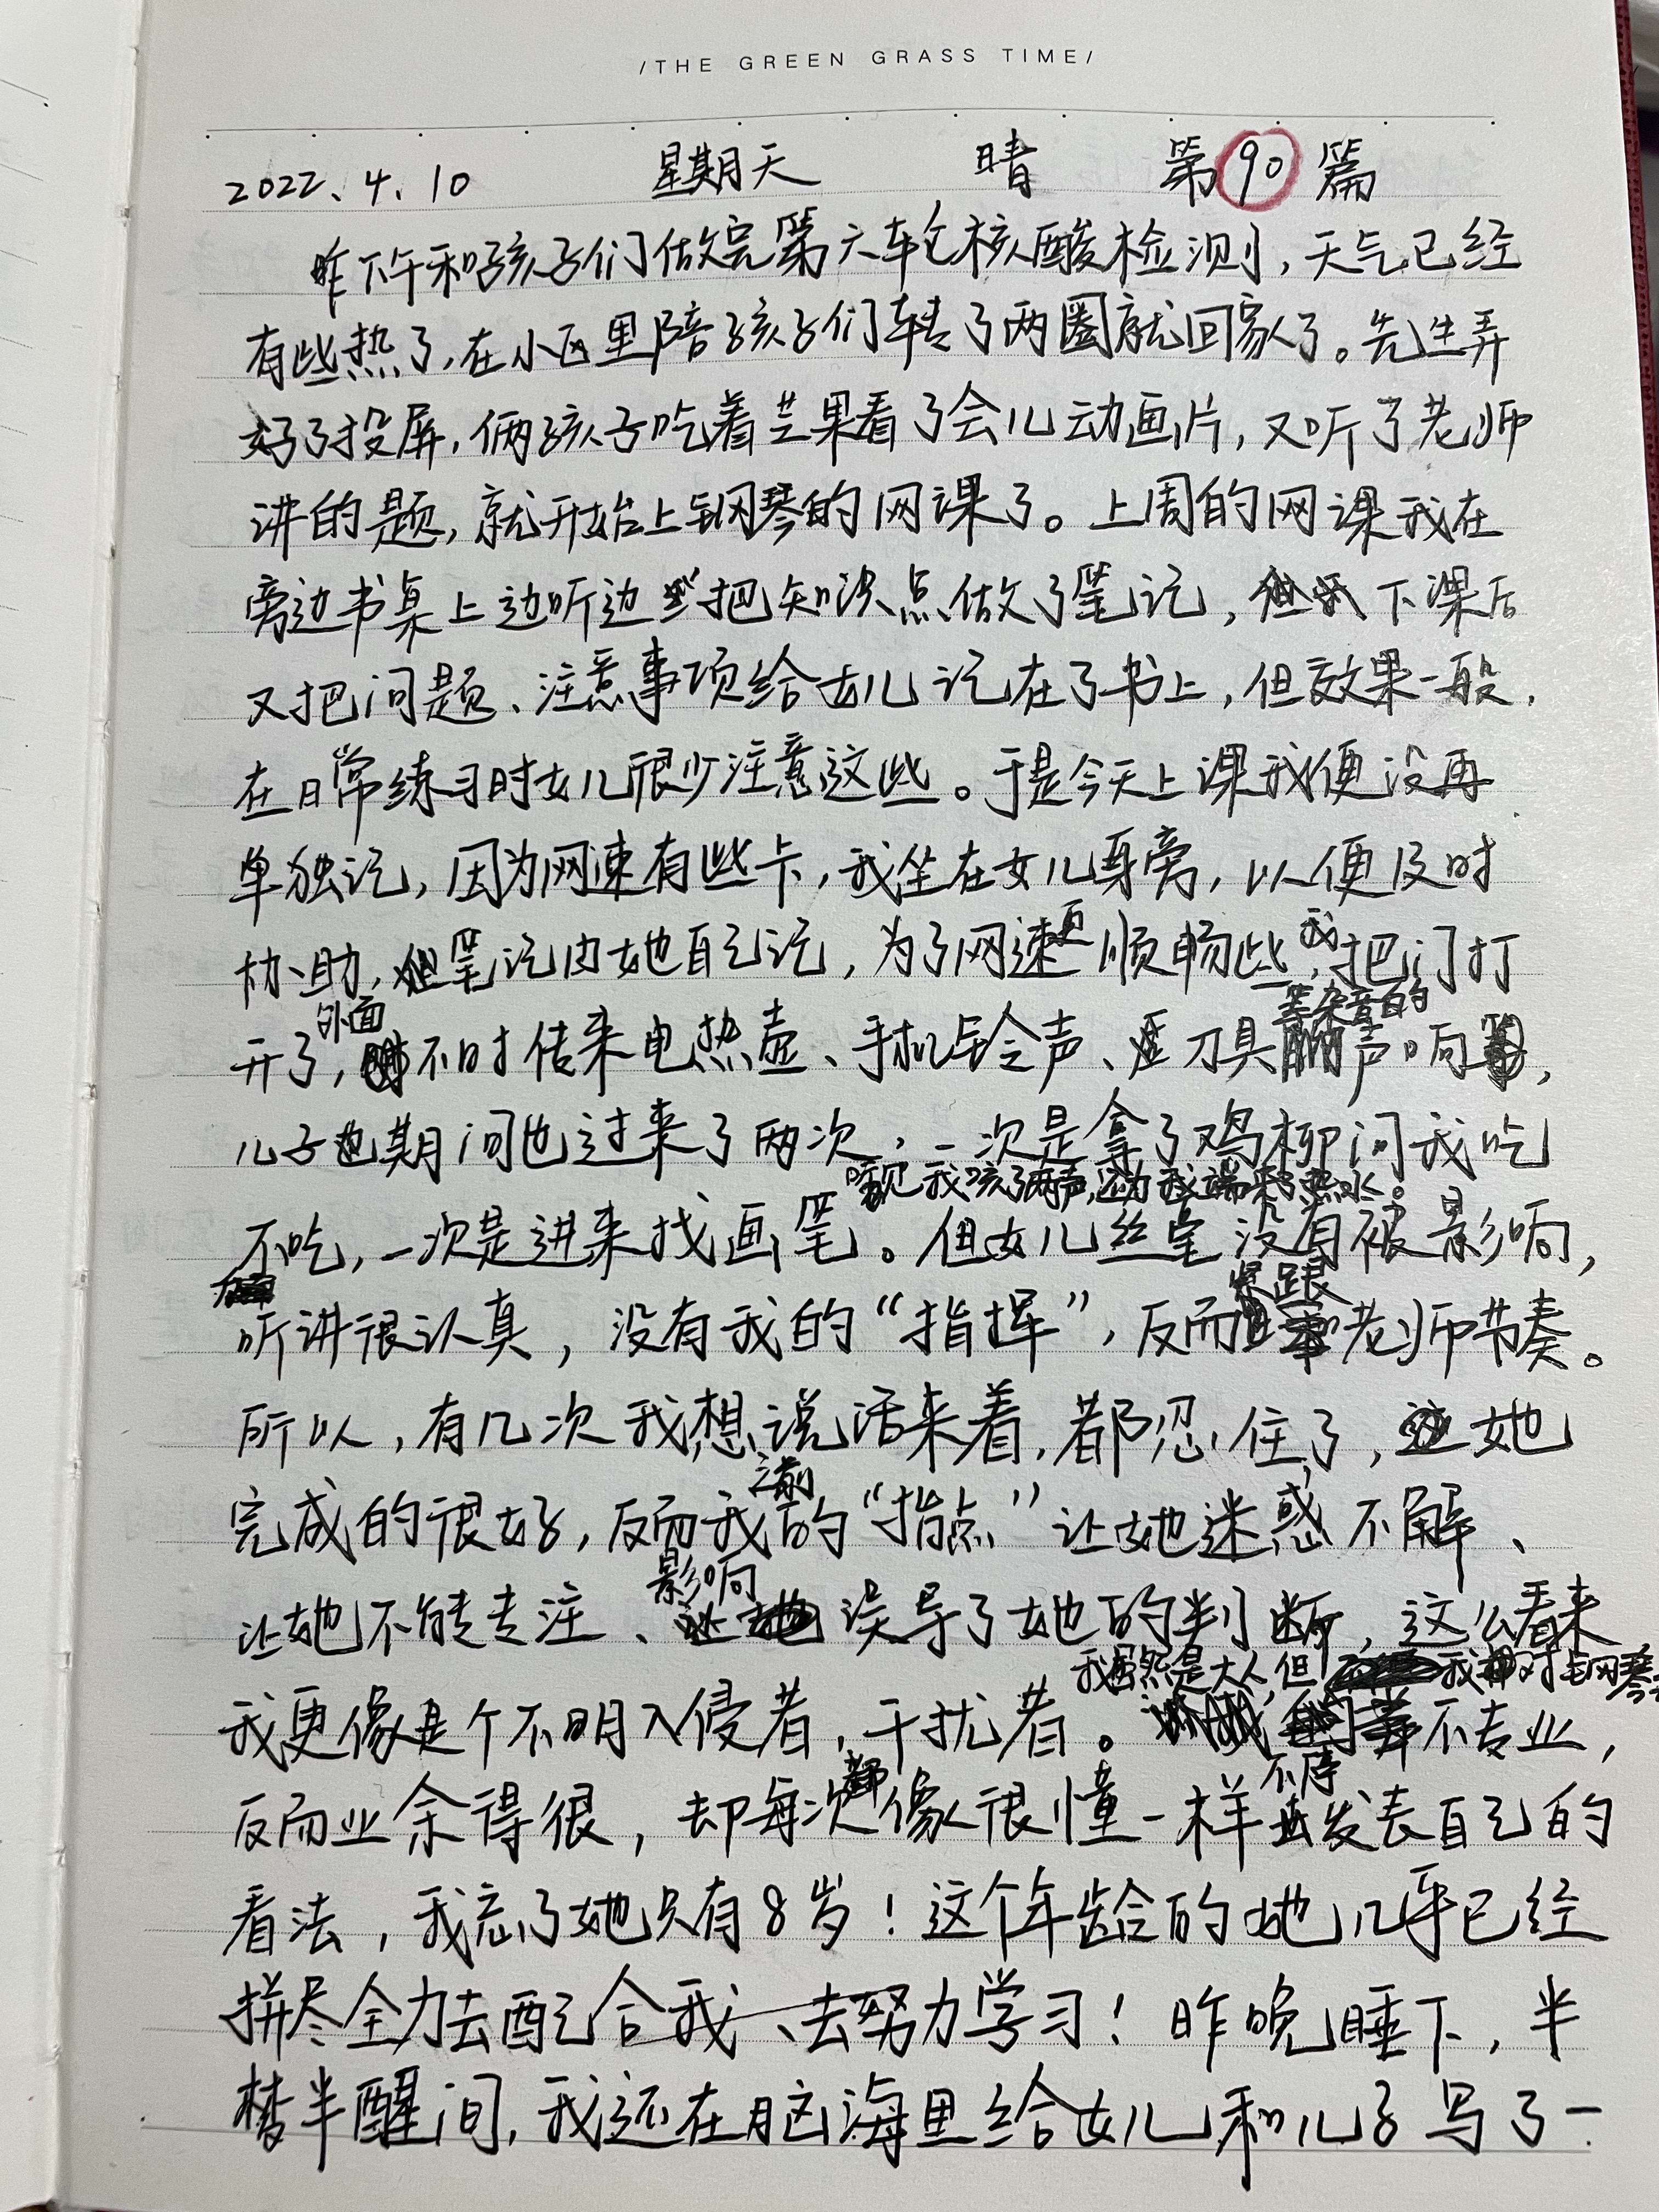 /THE GREEN GRASS TIME/
2022.4.10 星期天 晴 第90篇
昨下午和孩子们做完第六轮核酸检测，天气已经
有些热了，在小区里陪孩子们转了两圈就回家了。先生弄
好了投屏，俩孩子吃着芒果看了会儿动画片，又听了老师
讲的题，就开始上钢琴的网课了。上周的网课我在
旁边书桌上边听边把知识点做了笔记，下课后
又把问题、注意事项给女儿记在了书上，但效果一般，
在日常练习时女儿很少注意这些。于是今天上课我便没再
单独记，因为网速有些卡，我坐在女儿身旁，以便及时
协助，笔记由她自己记，为了网速更顺畅些，我把门打
开了，外面不时传来电热壶、手机铃声、刀具等杂音的声响，
儿子期间也过来了两次，一次是拿了鸡柳问我吃
不吃，一次是进来找画笔。听见我咳了两声，还为我端来了热水。但女儿丝毫没有被影响，
听讲很认真，没有我的“指挥”，反而紧跟老师节奏。
所以，有几次我想说话来着，都忍住了，她
完成的很好，反而我之前的“指点”让她迷惑不解、
让她不能专注、影响误导了她的判断，这么看来
我更像是个不明入侵者，干扰者。我虽然是大人，但我对钢琴不专业，
反而业余得很，却每次都像很懂一样不停发表自己的
看法，我忘了她只有8岁！这个年龄的她几乎已经
拼尽全力去配合我、去努力学习！昨晚睡下，半
梦半醒间，我还在脑海里给女儿和儿子写了一